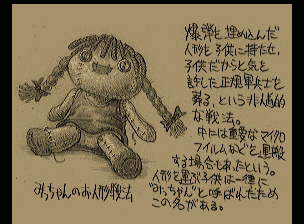 爆弾を埋め込んだ
人形を子供に持たせ、
子供だからと気を
許した正規軍兵士を
葬る、という非人道的
な戦法。
中には重要なマイクロ
フィルムなどを運搬
する場合もあったという。
人形を運ぶ子供は一様に
“みっちゃん”と呼ばれたため
この名がある。
みっちゃんのお人形戦法